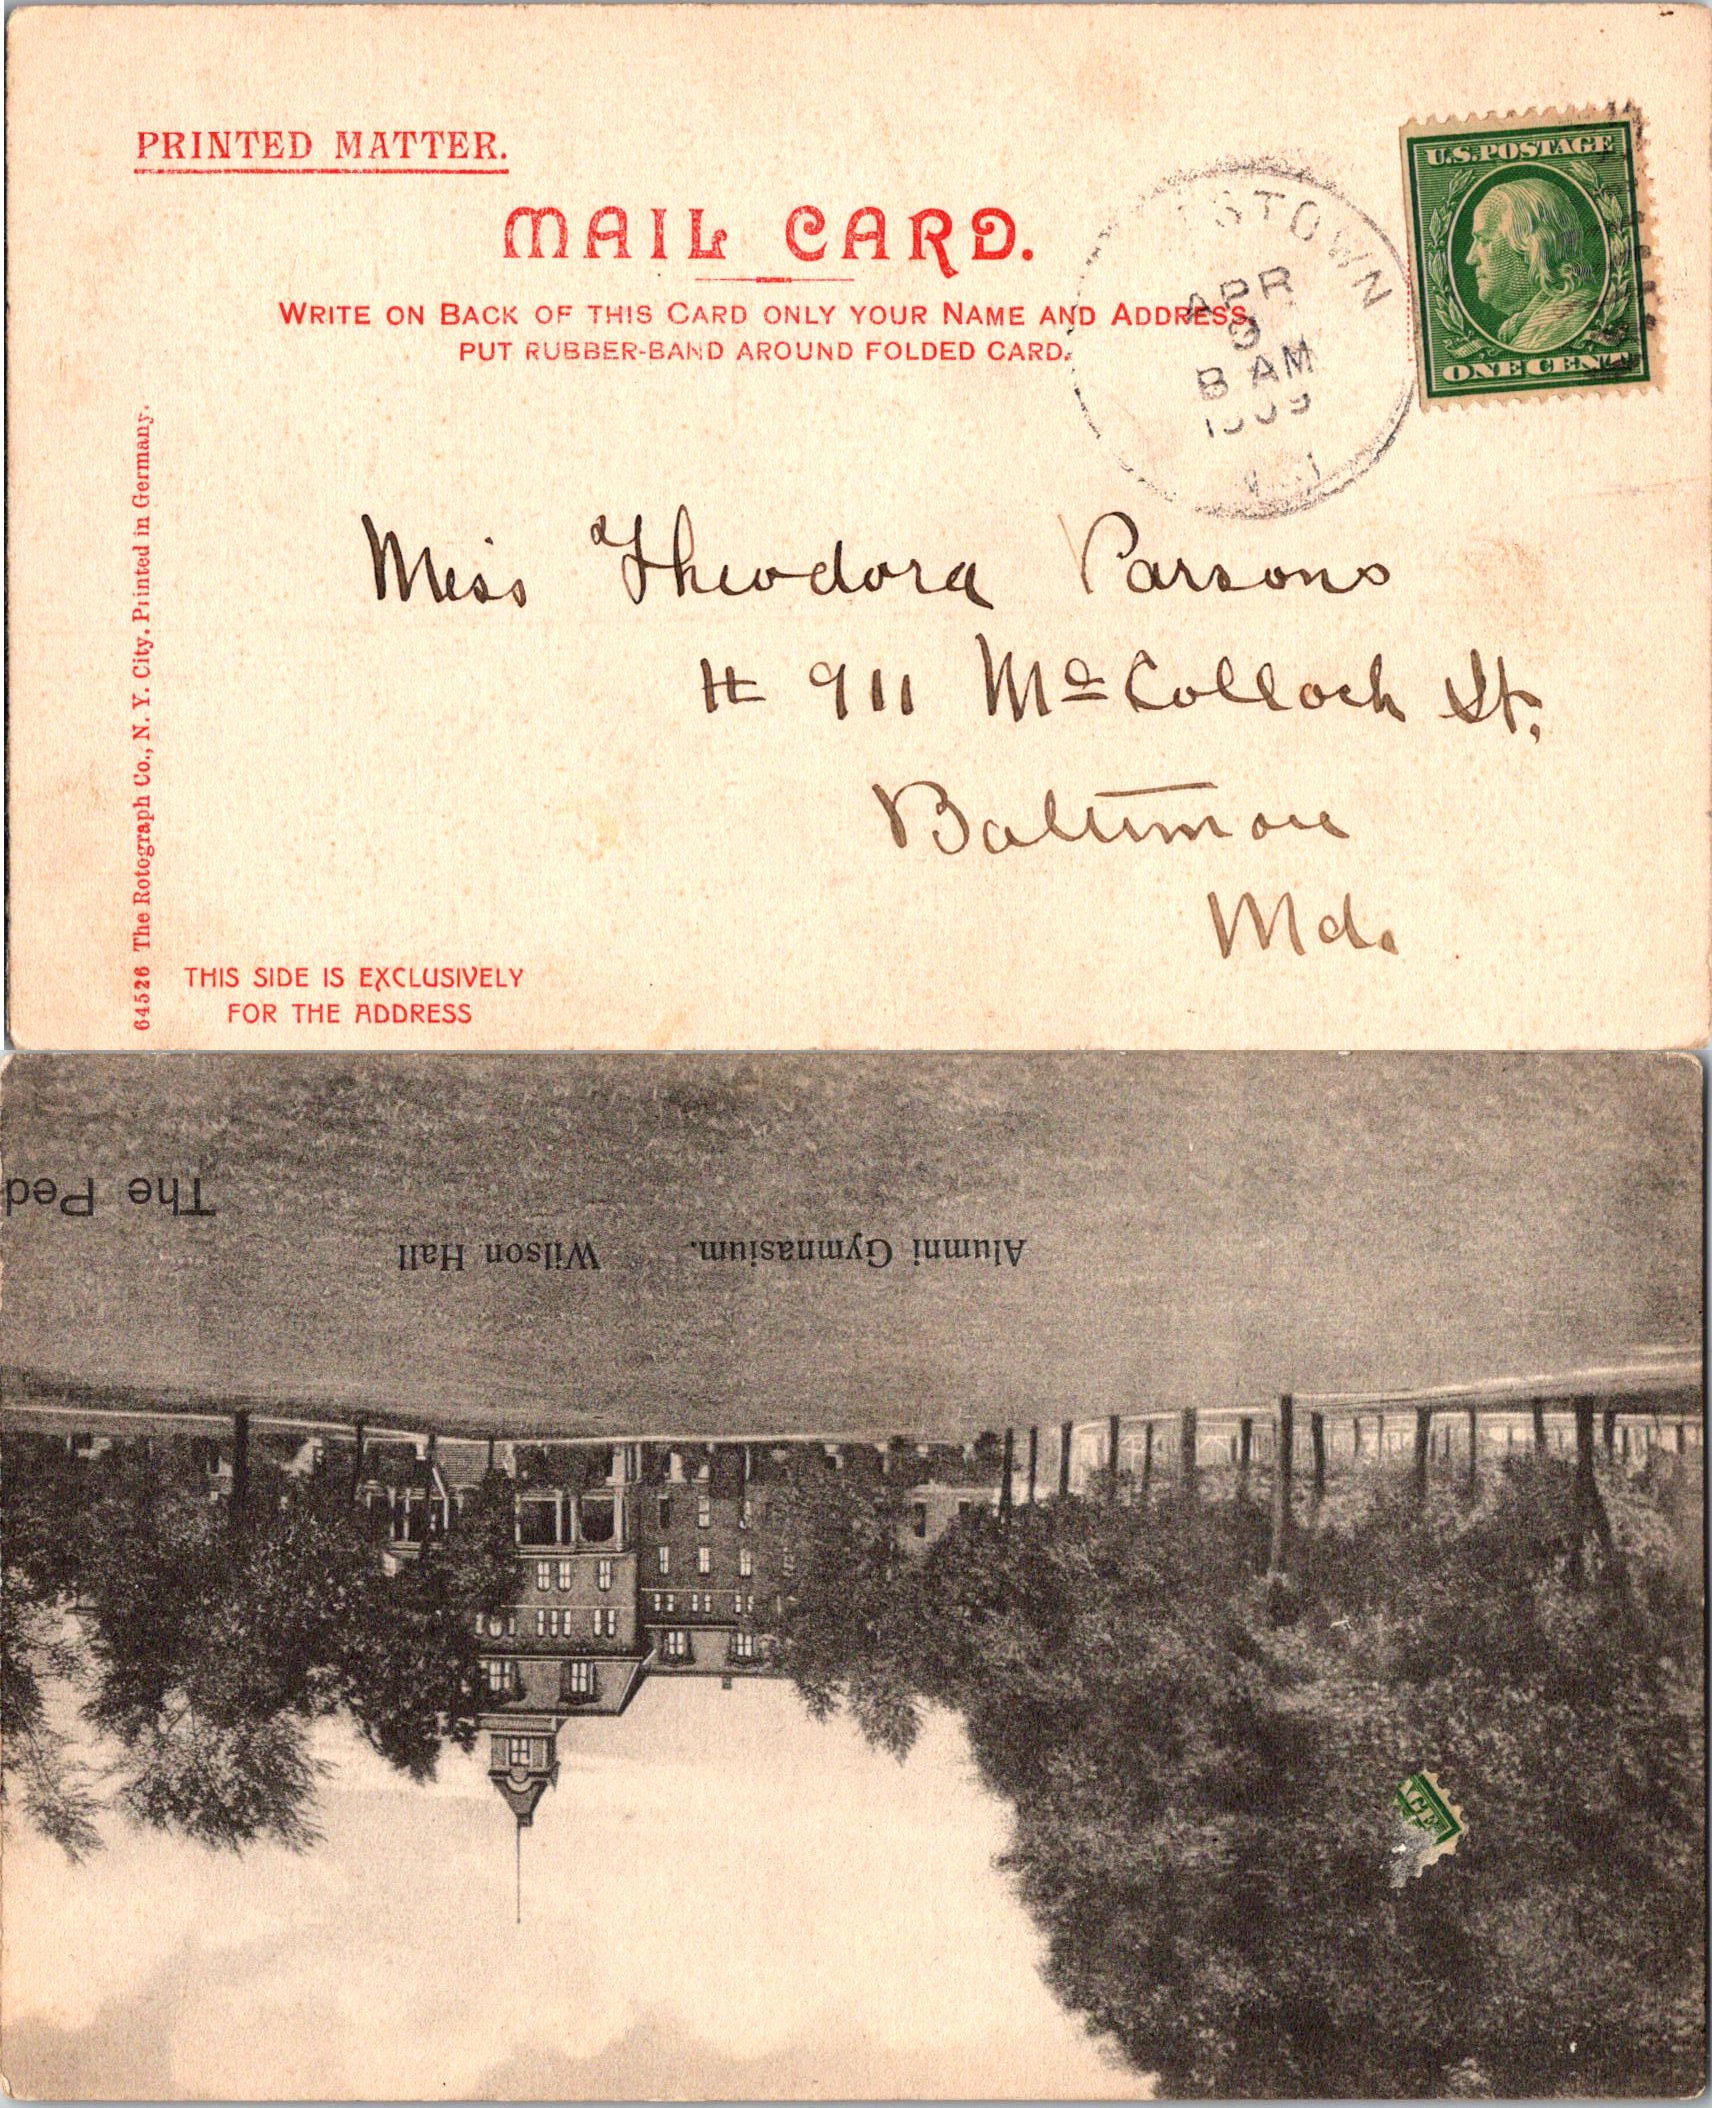 PRINTED MATTER.
MAIL CARD.
WRITE ON BACK OF THIS CARD ONLY YOUR NAME AND ADDRESS
PUT RUBBER-BAND AROUND FOLDED CARD.
U.S. POSTAGE
ONE CENT
STOWN
APR
9
8 AM
1909
Miss Theodora Parsons
# 911 McColloch St.
Baltimore
Md.
64526 The Rotograph Co., N. Y. City. Printed in Germany.
THIS SIDE IS EXCLUSIVELY
FOR THE ADDRESS
The Ped
Alumni Gymnasium. Wilson Hall
AGE